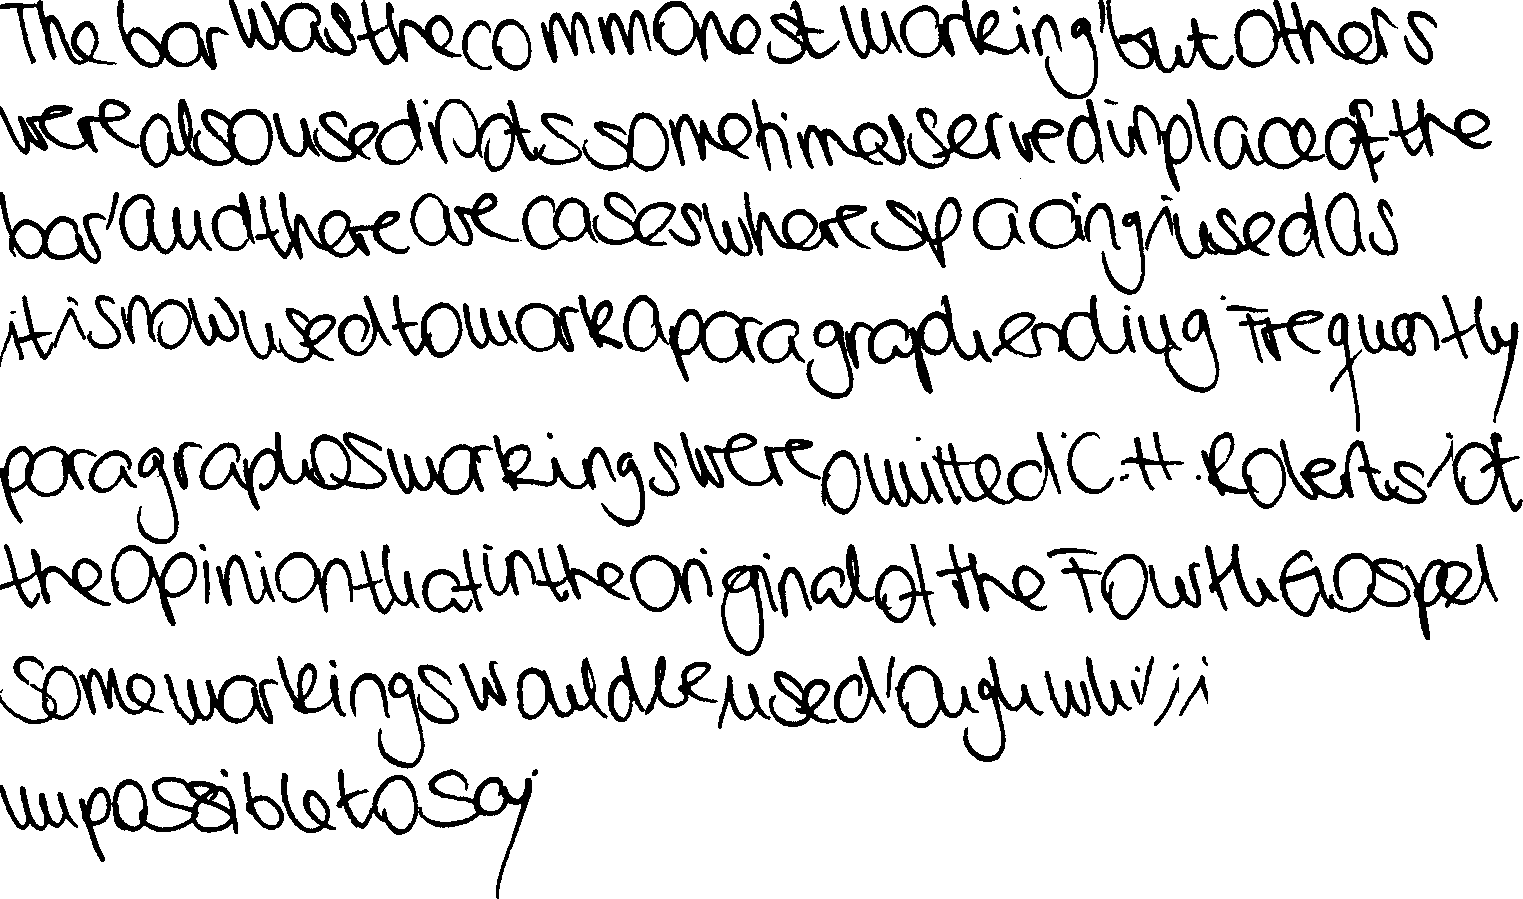 The bar was the commonest marking" but others
were also used Dots sometimes served in place of the
bar' and there are cases where spacing is used as
it is now used to mark a paragraph ending Frequently
paragraphos markings were omitted C.H. Roberts is of
the opinion that in the original of the Fourth Gospel
some markings would be used'
impossible to say